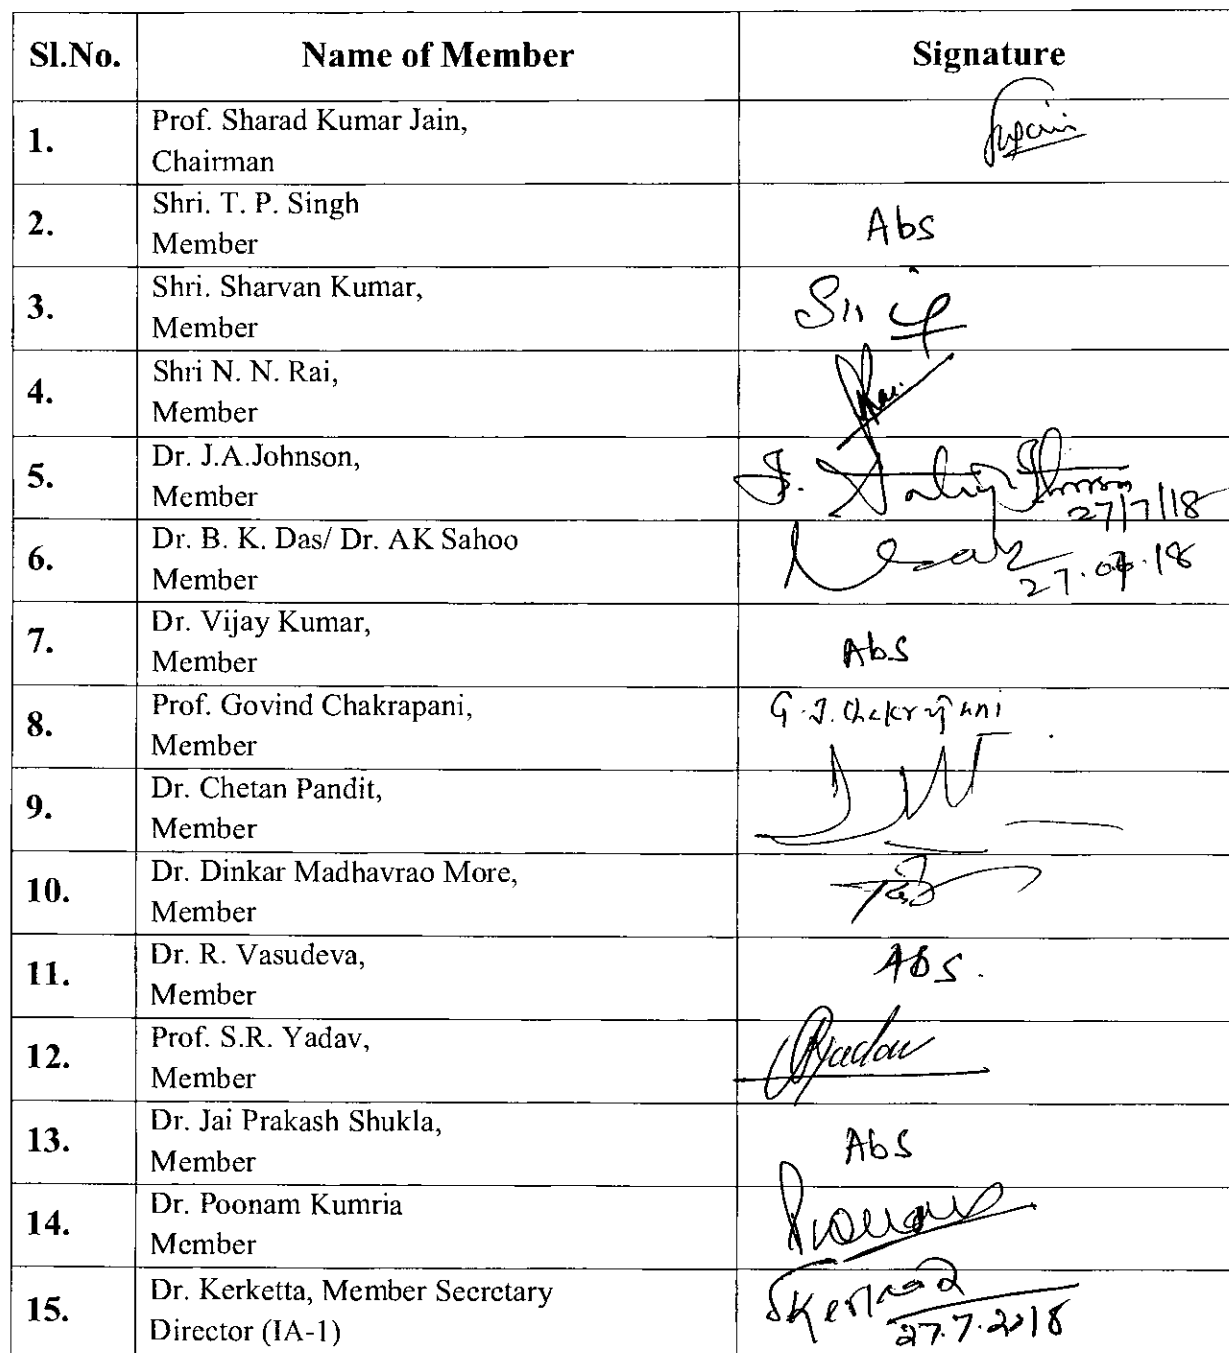 Sl.No. Name of Member Signature
1. Prof. Sharad Kumar Jain,
Chairman
2. Shri. T. P. Singh Abs
Member
3. Shri. Sharvan Kumar,
Member
4. Shri N. N. Rai,
Member
5. Dr. J.A.Johnson,
Member 27/7/18
6. Dr. B. K. Das/ Dr. AK Sahoo
Member 27.07.18
7. Dr. Vijay Kumar, Abs
Member
8. Prof. Govind Chakrapani,
Member
9. Dr. Chetan Pandit,
Member
10. Dr. Dinkar Madhavrao More,
Member
11. Dr. R. Vasudeva, Abs.
Member
12. Prof. S.R. Yadav, Yadav
Member
13. Dr. Jai Prakash Shukla, Abs
Member
14. Dr. Poonam Kumria
Member
15. Dr. Kerketta, Member Secretary
Director (IA-1) 27.7.2018